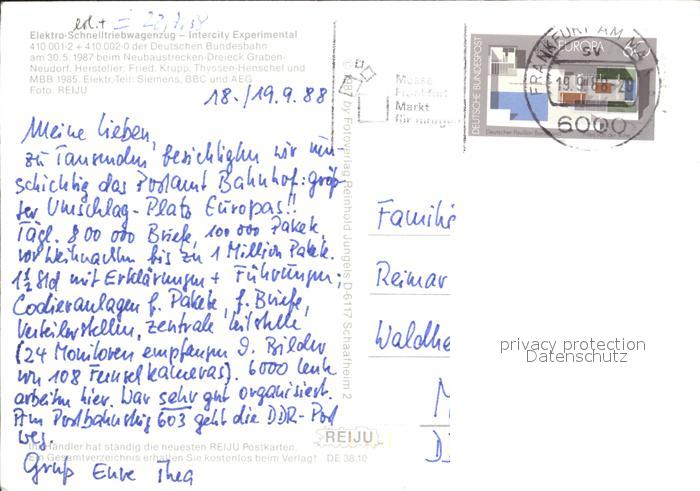 erh. + = 22.9.88
Elektro-Schnelltriebwagenzug – Intercity Experimental
410 001-2 + 410 002-0 der Deutschen Bundesbahn
am 30.5.1987 beim Neubaustrecken-Dreieck Graben-
Neudorf. Hersteller: Fried. Krupp, Thyssen-Henschel und
MBB 1985. Elektr.Teil: Siemens, BBC und AEG
Foto: REIJU
18./19.9.88
Meine Lieben,
zu Tausenden besichtigten wir um-
schichtig das Postamt Bahnhof: größ-
ter Umschlag-Platz Europas!!
Tägl. 800 000 Briefe, 100 000 Pakete,
vor Weihnachten bis zu 1 Million Pakete.
1½ Std mit Erklärungen + Führungen:
Codieranlagen f. Pakete, f. Briefe,
Verteilerstellen, zentrale Leitstelle
(24 Monitoren empfangen d. Bilder
von 108 Fernsehkameras). 6000 Leute
arbeiten hier. War sehr gut organisiert.
Am Postbahnsteig 603 geht die DDR-Post
weg.
Gruß Eure Thea
Ihr Händler hat ständig die neuesten REIJU Postkarten.
Ein Gesamtverzeichnis erhalten Sie kostenlos beim Verlag!
DE 38.10
REIJU
© 1987 by Fotoverlag Reinhold Jungels D-6117 Schaafheim 2
Messe
Frankfurt
Markt
für morgen
DEUTSCHE BUNDESPOST
EUROPA
FRANKFURT AM MAIN
19.9.88-20
6000
Familie
Reimar
Waldhe
M
D
privacy protection
Datenschutz